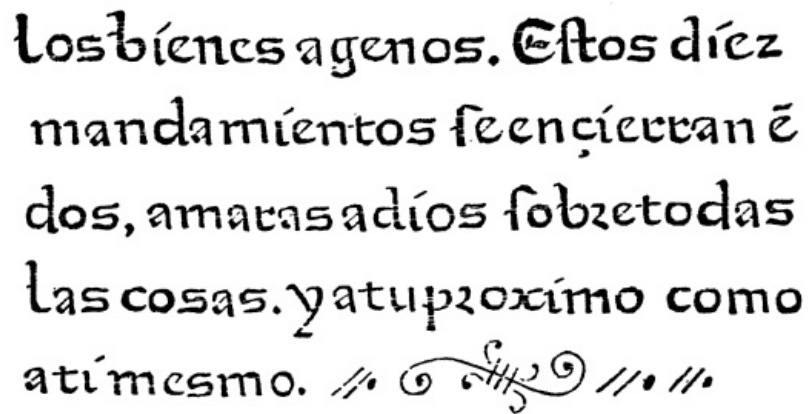 los bienes agenos. Estos diez
mandamientos se ençierran ẽ
dos, amaras a dios sobre todas
las cosas. y a tu proximo como
a ti mesmo.